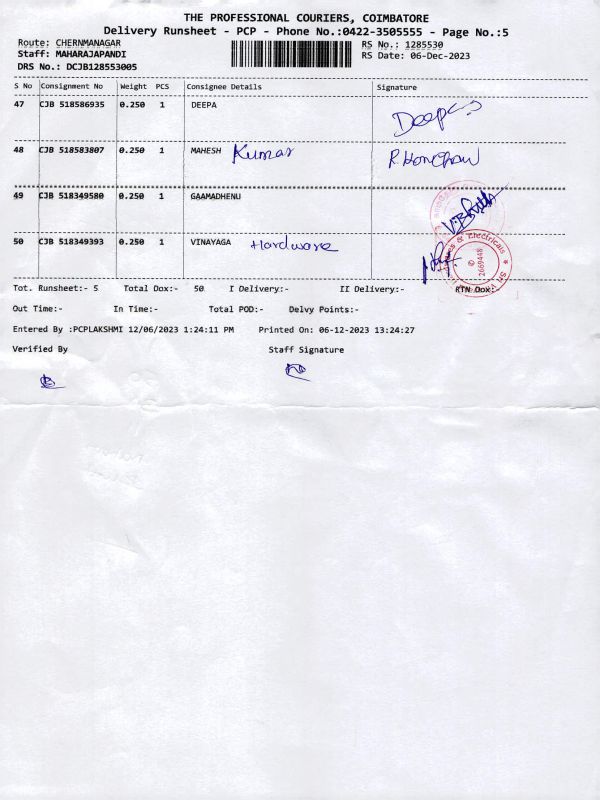 THE PROFESSIONAL COURIERS, COIMBATORE
Delivery Runsheet - PCP - Phone No.:0422-3505555 - Page No.:5
Route: CHERNMANAGAR RS No.: 1285530
Staff: MAHARAJAPANDI RS Date: 06-Dec-2023
DRS No.: DCJB128553005
S No Consignment No Weight PCS Consignee Details Signature
47 CJB 518586935 0.250 1 DEEPA Deepa
48 CJB 518583807 0.250 1 MAHESH Kumar
49 CJB 518349580 0.250 1 GAAMADHENU
50 CJB 518349393 0.250 1 VINAYAGA Hardware
& Electricals * Sri
2669448
Tot. Runsheet:- 5 Total Dox:- 50 I Delivery:- II Delivery:- RTN Dox:-
Out Time:- In Time:- Total POD:- Delvy Points:-
Entered By :PCPLAKSHMI 12/06/2023 1:24:11 PM Printed On: 06-12-2023 13:24:27
Verified By Staff Signature